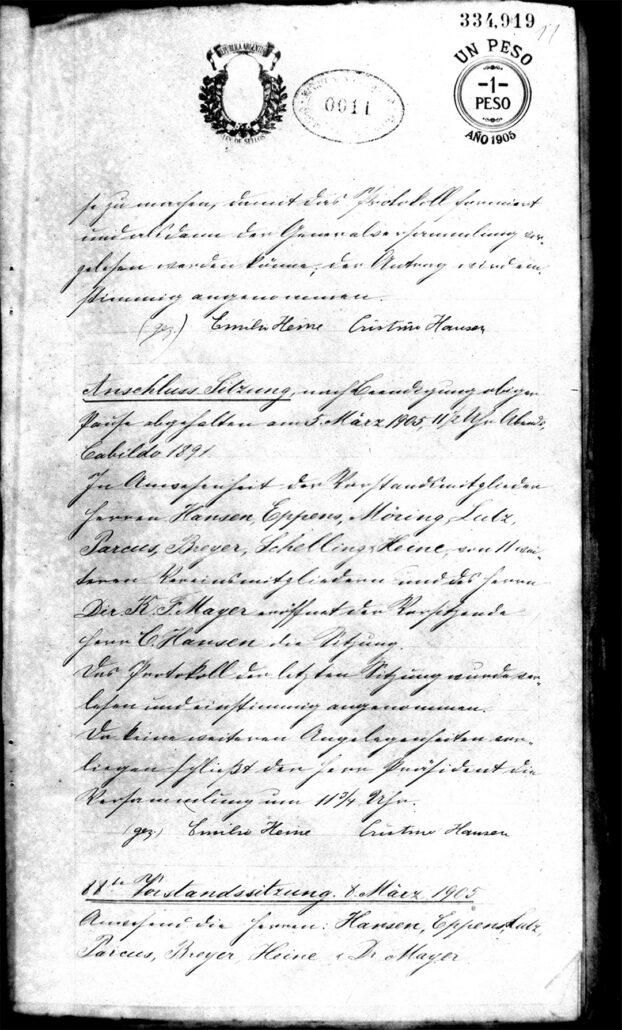 334,919
11
REPUBLICA ARGENTINA
LEY DE SELLOS
0011
UN PESO
-1-
PESO
AÑO 1905
se zu machen, damit das Protokoll formiert
und alsdann der Generalversammlung vor-
gelesen werden könne; der Antrag wird ein-
stimmig angenommen.
(gez.) Emilio Heine Cristino Hansen
Anschluss Sitzung, nach Beendigung obiger
Pause abgehalten am 5. März 1905, 11 1/2 Uhr Abends,
Cabildo 1891
In Anwesenheit der Vorstandsmitglieder
Herren Hansen, Eppens, Möring, Lutz,
Parcus, Breyer, Schelling, Heine, von 11 wei-
teren Vereinsmitgliedern und des Herrn
Dir. K. F. Mayer eröffnet der Vorsitzende
Herr C. Hansen die Sitzung.
Das Protokoll der letzten Sitzung wurde ver-
lesen und einstimmig angenommen.
Da keine weiteren Angelegenheiten vor-
liegen schließt der Herr Präsident die
Versammlung um 11 3/4 Uhr.
(gez.) Emilio Heine Cristino Hansen
88te Vorstandssitzung. 8 März 1905
Anwesend die Herren: Hansen, Eppens, Lutz,
Parcus, Breyer, Heine & Dr Mayer